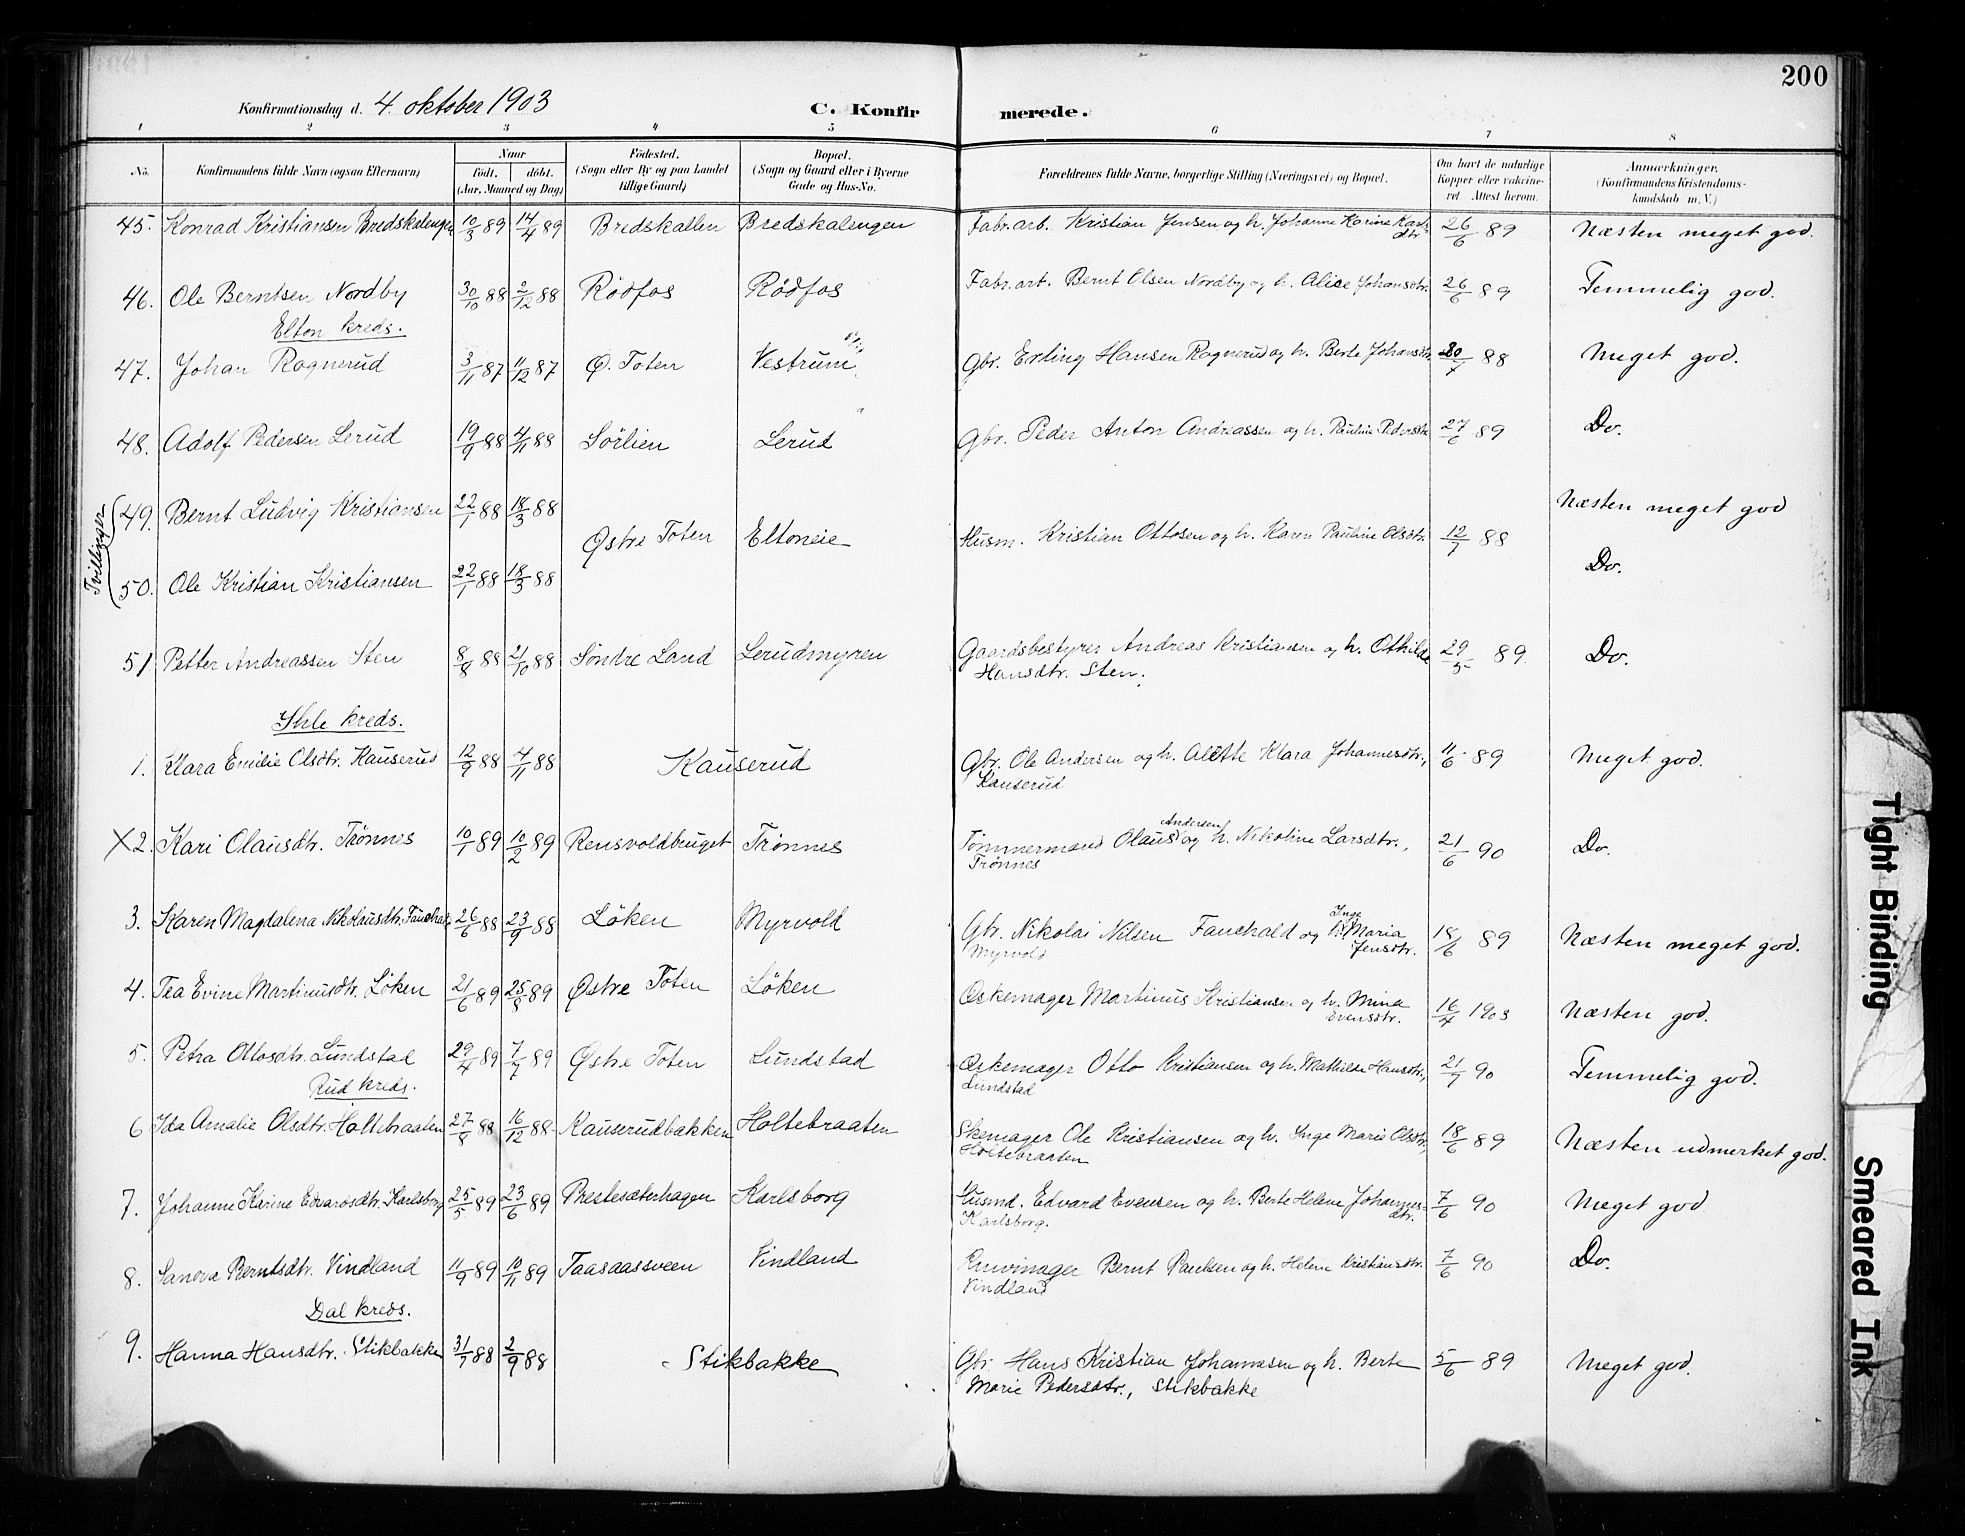 200
Konfirmationsdag d. 4. oktober 1903 C. Konfir merede.
1 2 3 4 5 6 7 8
No. Konfirmandens fulde Navn (ogsaa Efternavn) Naar født. døbt. (Aar, Maaned og Dag) Fødested. (Sogn eller By og paa Landet tillige Gaard) Bopæl. (Sogn og Gaard eller i Byerne Gade og Hus-No. Forældrenes fulde Navne, borgerlige Stilling (Næringsvei) og Bopæl. Om havt de naturlige Kopper eller vakcineret Attest herom. Anmærkninger. (Konfirmandens Kristendomskundskab m. V.)
45. Konrad Kristiansen Bredskalengen 10/3 89 14/4 89 Bredskallen Bredskalengen Fabr.arb. Kristian Jensen og h. Johanne Karine Karls dtr. 26/6 89 Næsten meget god.
46. Ole Berntsen Nordby 30/10 88 2/12 88 Rødfos Rødfos Fabr.arb. Bernt Olsen Nordby og h. Alise Johansdtr. 26/6 89 Temmelig god.
Elton kreds.
47. Johan Rognerud 3/11 87 11/12 87 Ø. Toten Vestrum Gbr. Erling Hansen Rognerud og h. Berte Johansdtr. 30/7 88 Meget god.
48. Adolf Pedersen Lerud 19/9 88 4/11 88 Sörlien Lerud Gbr. Peder Anton Andreassen og h. Pauline Pedersdtr. 27/6 89 Do.
Tvillinger
49. Bernt Ludvig Kristiansen 22/1 88 18/3 88 Næsten meget god
Østre Toten Eltoneie Husm. Kristian Ottosen og h. Karen Pauline Olsdtr. 12/7 88
50. Ole Kristian Kristiansen 22/1 88 18/3 88 Do.
51 Petter Andreassen Sten 8/8 88 21/10 88 Søndre Land Lerudmyren Gaardsbestyrer Andreas Kristiansen og h. Othilde 29/5 89 Do.
Hansdtr. Sten.
Ihle kreds.
1. Klara Emilie Olsdtr. Kauserud 12/9 88 4/11 88 Kauserud Gbr. Ole Andersen og h. Alette Klara Johannesdtr., 11/6 89 Meget god.
Kauserud
X2. Kari Olausdtr. Trønnes 10/1 89 10/2 89 Rensvoldbruget Trønnes Tømmermand Olaus Andersen og h. Nikoline Larsdtr., 21/6 90 Do.
Trønnes
3. Karen Magdalena Nikolausdtr. Fauchald 26/6 88 23/9 88 Løken Myrvold Gbr. Nikolai Nilsen Fauchald og h. Inge Maria Jensdtr. 18/6 89 Næsten meget god.
Myrvold
4. Tea Evine Martinusdtr. Løken 21/6 89 25/8 89 Østre Toten Løken Øskemager Martinus Kristiansen og h. Mina Evensdtr. 16/4 1903 Næsten god.
5. Petra Ottosdtr. Lundstad 29/4 89 7/7 89 Østre Toten Lundstad Øskemager Otto Kristiansen og h. Mathilde Hansdtr., 21/7 90 Temmelig god.
Lundstad
Rud kreds.
6 Ida Amalie Olsdtr. Holtebraaten 27/8 88 16/12 88 Kauserudbakken Holtebraaten Skomager Ole Kristiansen og h. Inge Marie Olsdtr., 18/6 89 Næsten udmerket god.
Holtebraaten
7. Johanne Karine Edvardsdtr. Karlsborg 25/5 89 23/6 89 Prestesæterhagen Karlsborg Husmd. Edvard Evensen og h. Berte Helene Johannesdtr. 7/6 90 Meget god.
Karlsborg.
8. Sanova Berntsdtr. Vindland 11/9 89 10/11 89 Taasaassveen Vindland Bernt Paulsen og h. Helene Kristiansdtr. 7/6 90 Do.
Vindland
Dal kreds.
9. Hanna Hansdtr. Stikbakke 31/7 88 2/9 88 Stikbakke Gbr. Hans Kristian Johannesen og h. Berte 5/6 89 Meget god.
Marie Pedersdtr., Stikbakke
Tight Binding
Smeared Ink